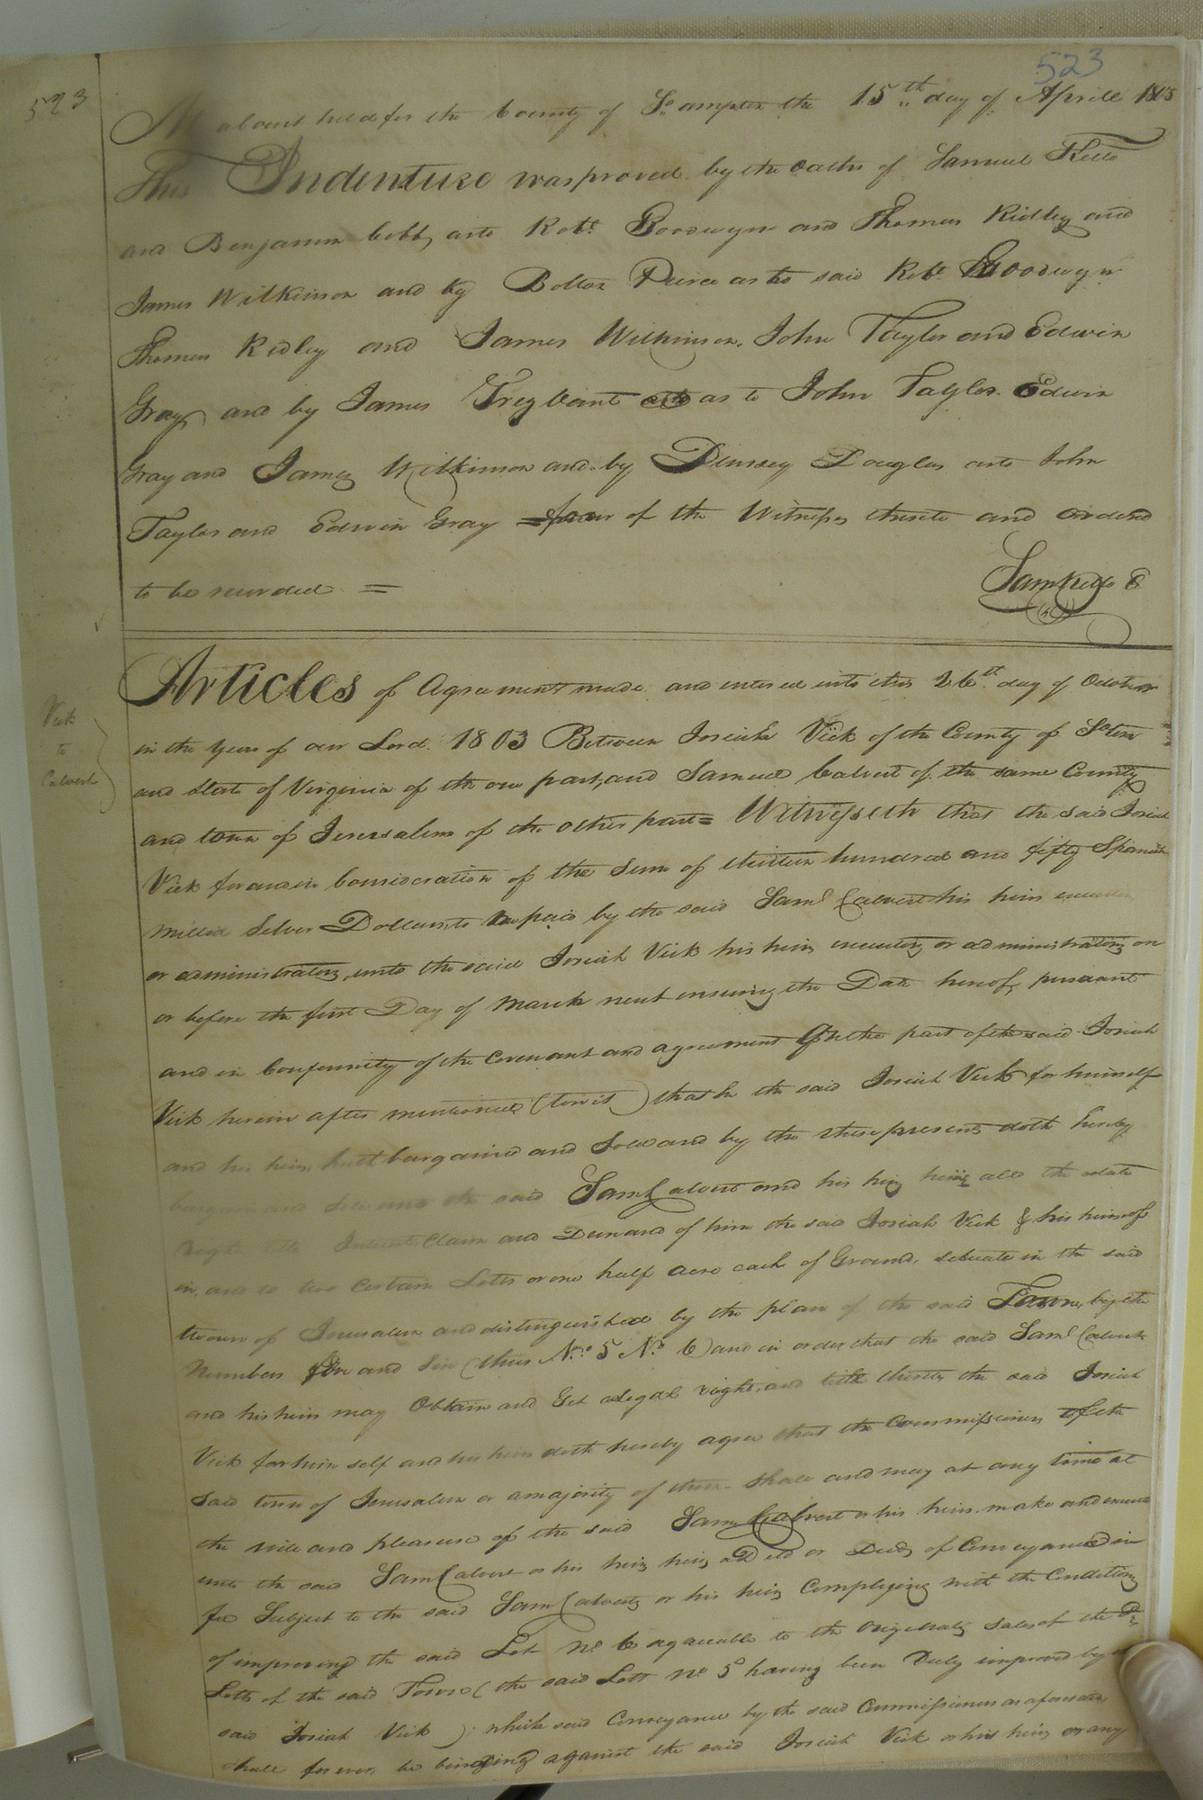 523
523
At a Court held for the County of So.ampton the 15th day of Aprile 1805
This Indenture was proved by the oaths of Samuel Kello
and Benjamin Cobb, as to Robt. Goodwyn and Thomas Ridley and
James Wilkinson and by Bolton Peirce as to said Robt. Goodwyn
Thomas Ridley and James Wilkinson, John Taylor and Edwin
Gray, and by James as to John Taylor Edwin
Gray and James Wilkinson and by Dempsey Douglas as to John
Taylor and Edwin Gray = four of the Witnesses thereto and ordered
to be recorded =
Sam Kello C
Articles of Agreement made and entered into this 26th day of October
Vick
to
Calvert
in the Year of our Lord 1803 Between Josiah Vick of the County of So.ton
and State of Virginia of the one part, and Samuel Calvert of the same County
and town of Jerusalem of the other part = Witnesseth that the said Josiah
Vick for and in Consideration of the Sum of thirteen hundred and fifty Spanish
milled Silver Dollars, to be paid by the said Saml Calvert his heirs
or administrators, unto the said Josiah Vick his heirs executors or administrators on
or before the first Day of March next ensuing the Date hereof, pursuant
and in Conformity of the Covenant and agreement On the part of the said Josiah
Vick herein after mentioned (towit) that he the said Josiah Vick for himself
and his heirs hath bargained and Sold and by the these presents doth hereby
bargain and sell unto the said Saml Calvert and his heirs all the estate
right title Interest Claim and Demand of him the said Josiah Vick & his heirs of
in, and to two Certain Lotts or one half acre each of Ground, situate in the said
town of Jerusalem and distinguished by the plan of the said Town, by the
Numbers five and Six (thus No. 5 No. 6) and in order that the said Saml Calvert
and his heirs may Obtain and Get a legal right and title thereto the said Josiah
Vick for him self and his heirs doth hereby agree that the Commissioners of the
said town of Jerusalem or a majority of them shall and may at any time at
the will and pleasure of the said Saml Calvert or his heirs make and execute
unto the said Saml Calvert or his heirs a Deed or Deeds of Conveyance in
fee Subject to the said Saml Calverts or his heirs Complying with the Conditions
of improving the said Lot No 6 agreeable to the Original sales of the
Lotts of the said Town (the said Lott No 5 having been Duly improved by
said Josiah Vick) which said Conveyance by the said Commissioners as aforesaid
shall for ever, be binding against the said Josiah Vick or his heirs or any